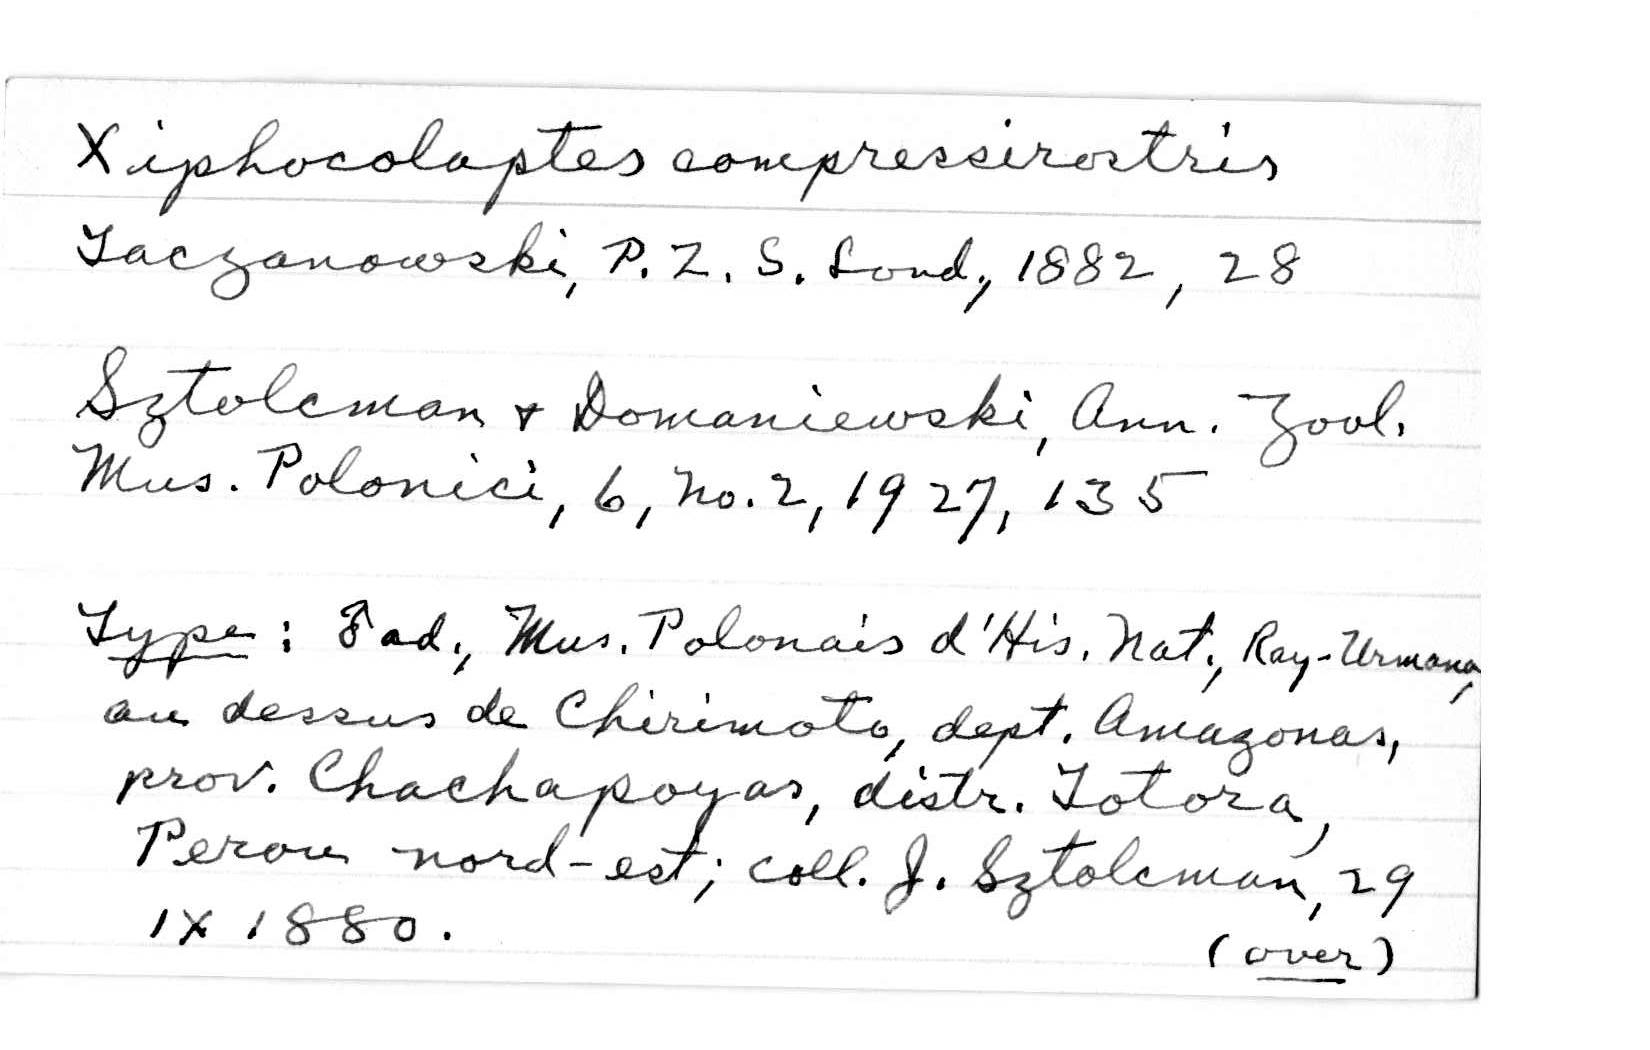 Xiphocolaptes compressirostris
Taczanowski, P. Z. S. Lond., 1882, 28
Sztolcman & Domaniewski, Ann. Zool.
Mus. Polonici, 6, no. 2, 1927, 135
Type: ad., Mus. Polonais d'His. Nat., Ray-Urmana,
au dessus de Chirimoto, dept. Amazonas,
prov. Chachapoyas, distr. Totora,
Perou nord-est; coll. J. Sztolcman, 29
IX 1880.
(over)